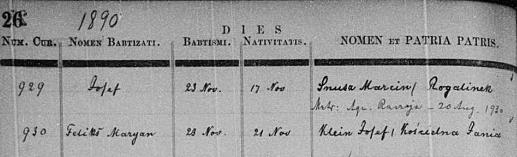 26. 1890
DIES
NUM. CUR. NOMEN BABTIZATI. BABTISMI. NATIVITATIS. NOMEN ET PATRIA PATRIS.
929 Josef 23 Nov. 17 Nov Snusa Marcin / Rogalinek
20 Aug. 1930
930 Feliks Maryan 23 Nov. 21 Nov Klein Josef / Kościelna Jania